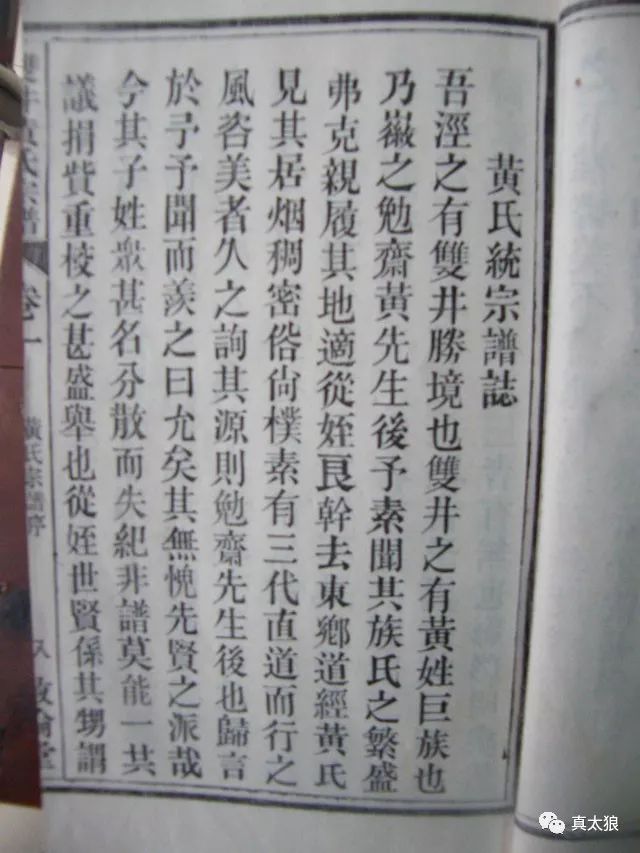 黃氏統宗譜誌
吾涇之有雙井勝境也雙井之有黃姓巨族也
乃嶶之勉齋黃先生後予素聞其族氏之繁盛
弗克親履其地適從姪艮幹去東鄉道經黃氏
見其居烟稠密俗尙樸素有三代直道而行之
風咨美者久之詢其源則勉齋先生後也歸言
於予予聞而羨之曰允矣其無愧先賢之派哉
今其子姓眾甚名分散而失紀非譜莫能一其
議捐貲重梭之甚盛舉也從姪世賢係其甥謂
雙井黃氏宗譜
卷一
黃氏宗譜序
敦倫堂
真太狼